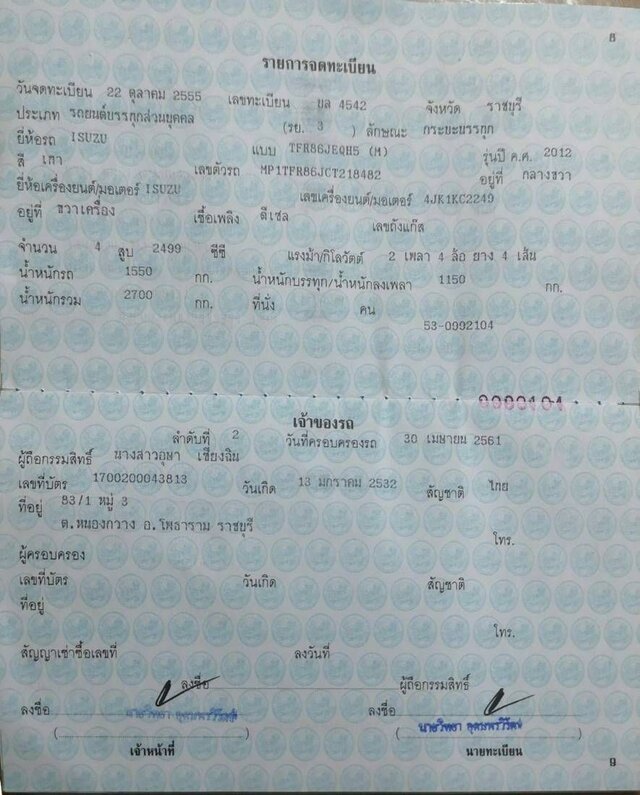 8
รายการจดทะเบียน
วันจดทะเบียน 22 ตุลาคม 2555 เลขทะเบียน บล 4542 จังหวัด ราชบุรี
ประเภท รถยนต์บรรทุกส่วนบุคคล (รย. 3 ) ลักษณะ กระบะบรรทุก
ยี่ห้อรถ ISUZU แบบ TFR86JEQH5 (M) รุ่นปี ค.ศ. 2012
สี เทา เลขตัวรถ MP1TFR86JCT218482 อยู่ที่ กลางขวา
ยี่ห้อเครื่องยนต์/มอเตอร์ ISUZU เลขเครื่องยนต์/มอเตอร์ 4JK1KC2249
อยู่ที่ ขวาเครื่อง เชื้อเพลิง ดีเซล เลขถังแก๊ส
จำนวน 4 สูบ 2499 ซีซี แรงม้า/กิโลวัตต์ 2 เพลา 4 ล้อ ยาง 4 เส้น
น้ำหนักรถ 1550 กก. น้ำหนักบรรทุก/น้ำหนักลงเพลา 1150 กก.
น้ำหนักรวม 2700 กก. ที่นั่ง คน
53-0992104
เจ้าของรถ
ลำดับที่ 2 วันที่ครอบครองรถ 30 เมษายน 2561
ผู้ถือกรรมสิทธิ์ นางสาวอุษา เซี่ยงฉิน
เลขที่บัตร 1700200043813 วันเกิด 13 มกราคม 2532 สัญชาติ ไทย
ที่อยู่ 83/1 หมู่ 3
ต.หนองกวาง อ.โพธาราม ราชบุรี โทร.
ผู้ครอบครอง
เลขที่บัตร วันเกิด สัญชาติ
ที่อยู่
โทร.
สัญญาเช่าซื้อเลขที่ ลงวันที่
ลงชื่อ ผู้ถือกรรมสิทธิ์
ลงชื่อ ลงชื่อ
( ) ( )
เจ้าหน้าที่ นายทะเบียน
9